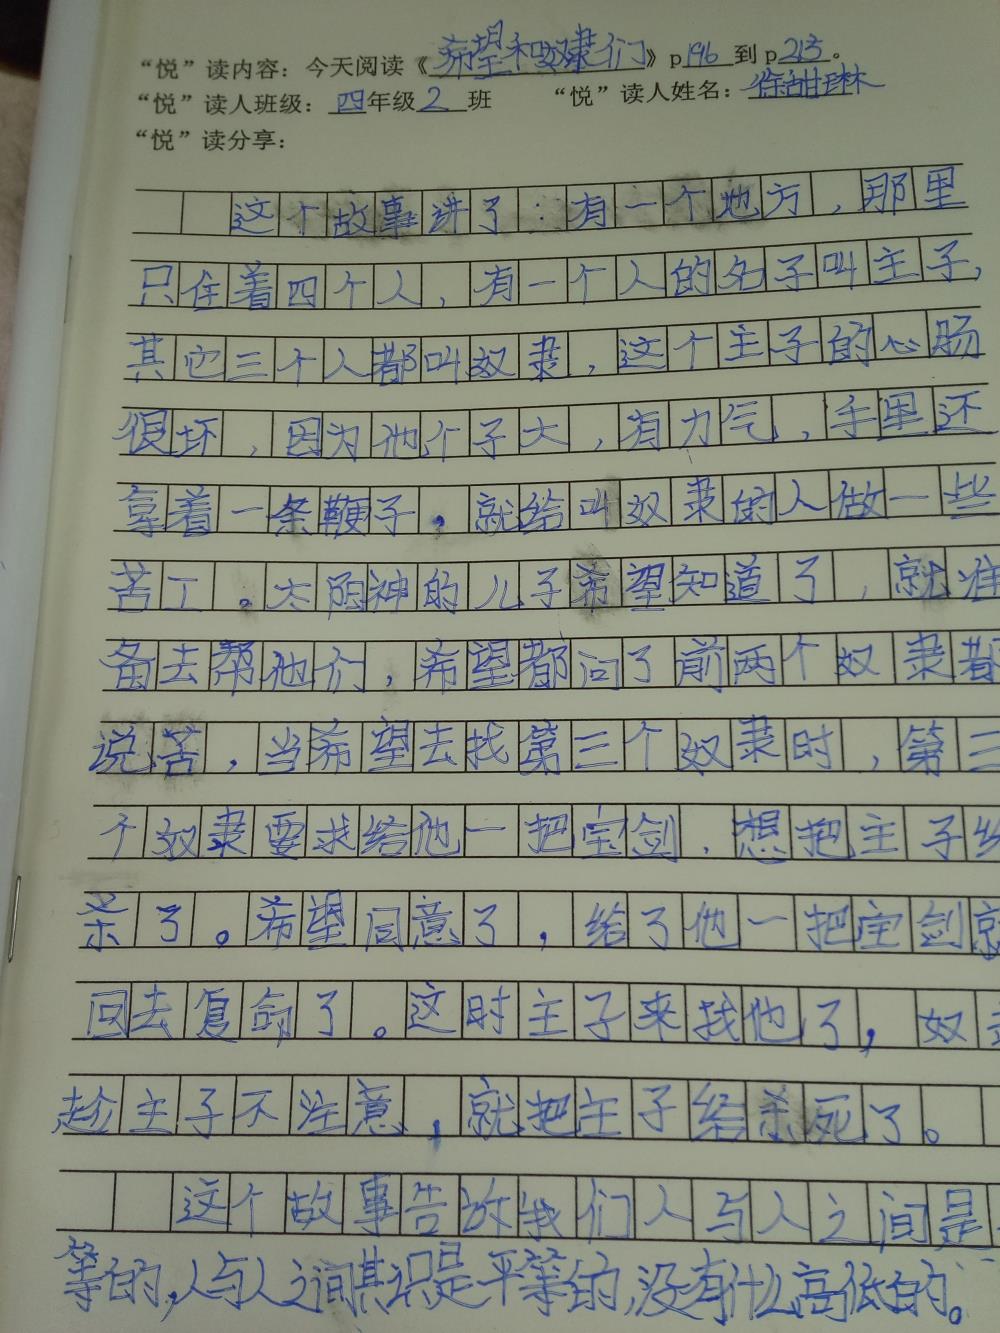 “悦”读内容：今天阅读《希望和奴隶们》p196到p213。
“悦”读人班级：四年级2班 “悦”读人姓名：徐甜琳
“悦”读分享：
这个故事讲了：有一个地方，那里
只住着四个人，有一个人的名子叫主子，
其它三个人都叫奴隶，这个主子的心肠
很坏，因为他个子大，有力气，手里还
拿着一条鞭子，就给叫奴隶的人做一些
苦工。太阳神的儿子希望知道了，就准
备去帮他们，希望都问了前两个奴隶都
说苦，当希望去找第三个奴隶时，第三
个奴隶要求给他一把宝剑，想把主子
杀了。希望同意了，给了他一把宝剑就
回去复命了。这时主子来找他了，奴
趁主子不注意，就把主子给杀死了。
这个故事告故我们人与人之间是
等的，人与人之间其识是平等的，没有什么高低的。